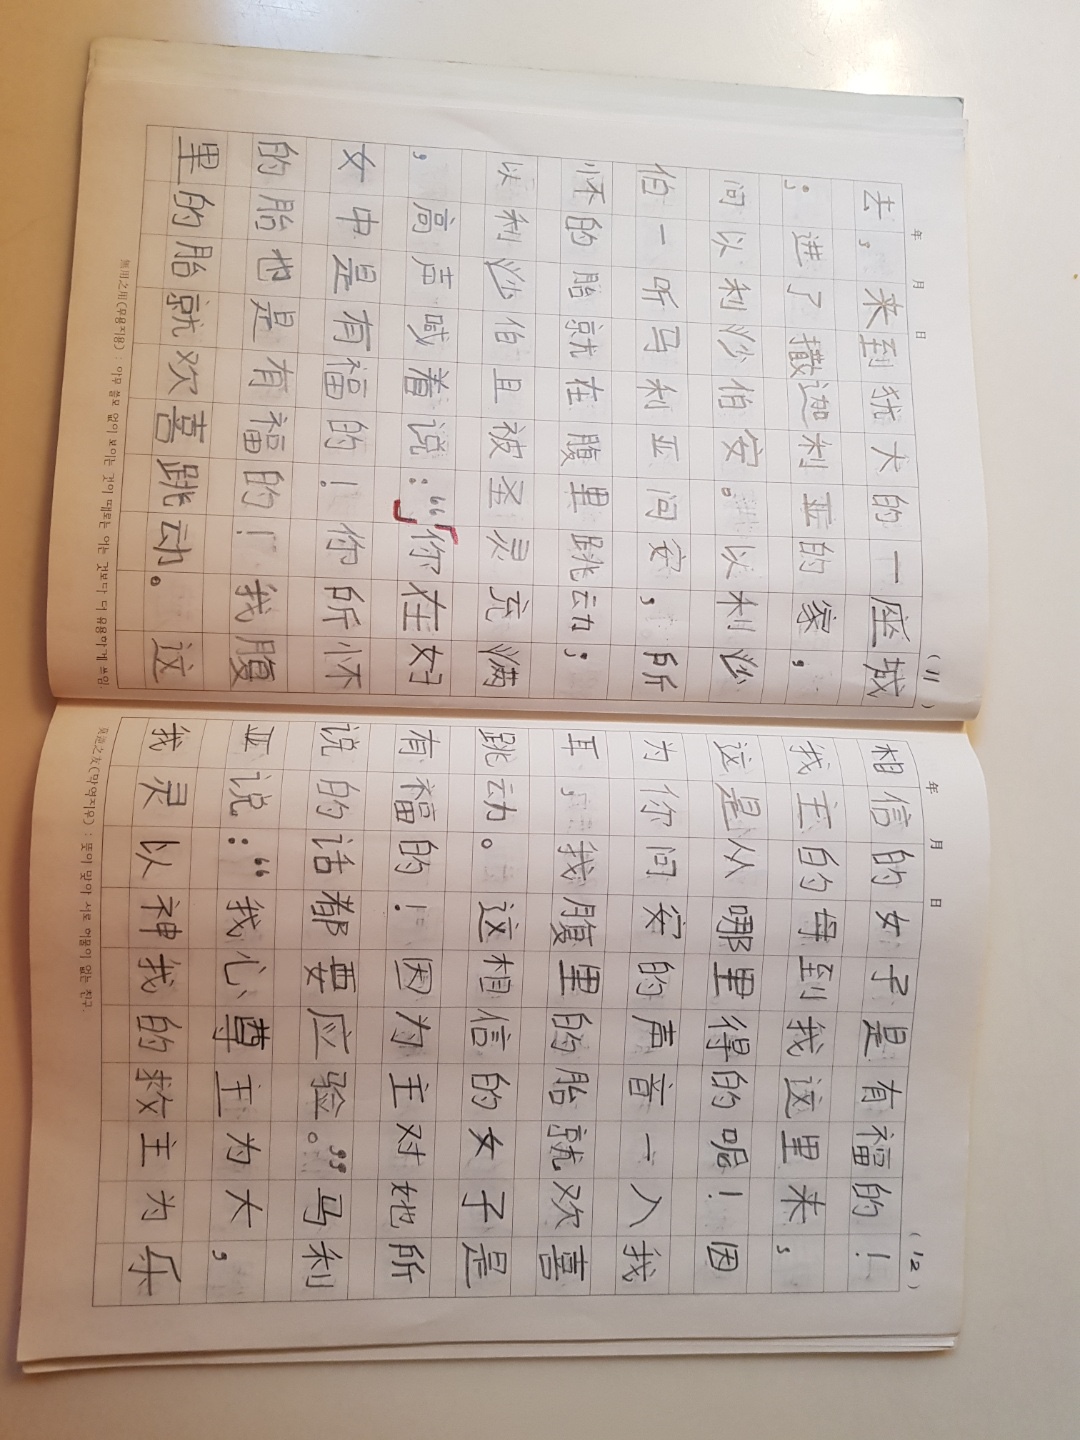 年 月 日 (11)
去，来到犹大的一座城
；进了撒迦利亚的家，
问以利沙伯安。以利沙
伯一听马利亚问安，所
怀的胎就在腹里跳动；
以利沙伯且被圣灵充满
，高声喊着说：“「你在妇
女中是有福的！你所怀
的胎也是有福的！我腹
里的胎就欢喜跳动。这
無用之用(무용지용) : 아무 쓸모 없이 보이는 것이 때로는 어느 것보다 더 유용하게 쓰임.
年 月 日 (12)
相信的女子是有福的！
我主的母到我这里来，
这是从哪里得的呢！因
为你问安的声音一入我
耳，我腹里的胎就欢喜
跳动。这相信的女子是
有福的！因为主对她所
说的话都要应验。”马利
亚说：“我心尊主为大，
我灵以神我的救主为乐
莫逆之友(막역지우) : 뜻이 맞아 서로 허물이 없는 친구.